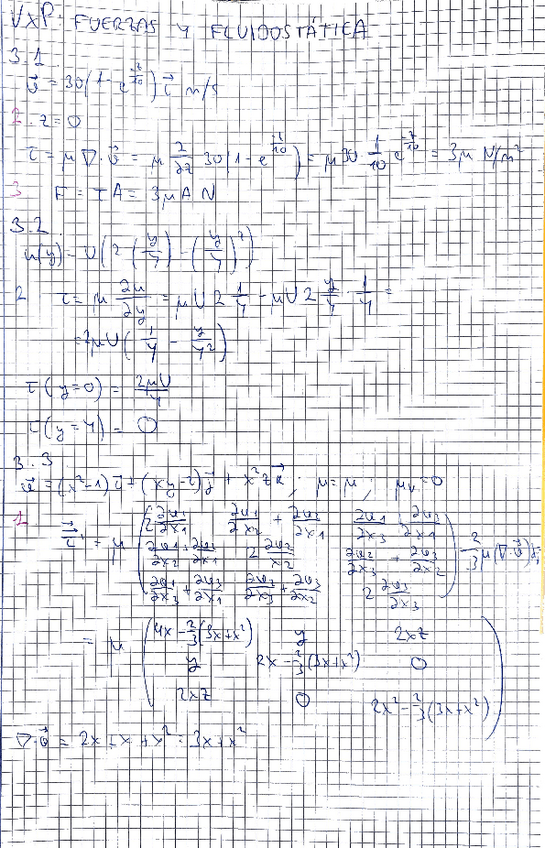 VxP. FUERZAS Y FLUIDOSTÁTICA
3.1
v⃗ = 30(1 - e^(-z/10)) i⃗ m/s
2. z=0
τ = μ ∇·v⃗ = μ ∂/∂z 30(1 - e^(-z/10)) = μ30·1/10 e^(-z/10) = 3μ N/m²
3 F = τA = 3μA N
3.2
u(y) = U(2(y/Y) - (y/Y)²)
2 τ = μ ∂u/∂y = μU2 1/Y - μU2 y/Y · 1/Y =
= 2μU(1/Y - y/Y²)
τ(y=0) = 2μU/Y
τ(y=Y) = 0
3.3
v⃗ = (x²-1) i⃗ + (xy-2) j⃗ + x²z k⃗ ; μ=μ, μv=0
1 τ' = μ (2 ∂v1/∂x1 ∂v1/∂x2 + ∂v2/∂x1 ∂v1/∂x3 + ∂v3/∂x1
∂v1/∂x2 + ∂v2/∂x1 2 ∂v2/x2 ∂v2/∂x3 + ∂v3/∂x2
∂v1/∂x3 + ∂v3/∂x1 ∂v2/∂x3 + ∂v3/∂x2 2 ∂v3/∂x3) - 2/3 μ(∇·v⃗)
= μ (4x - 2/3(3x+x²) y 2xz
y 2x - 2/3(3x+x²) 0
2xz 0 2x² - 2/3(3x+x²))
∇·v⃗ = 2x + x + x² = 3x + x²